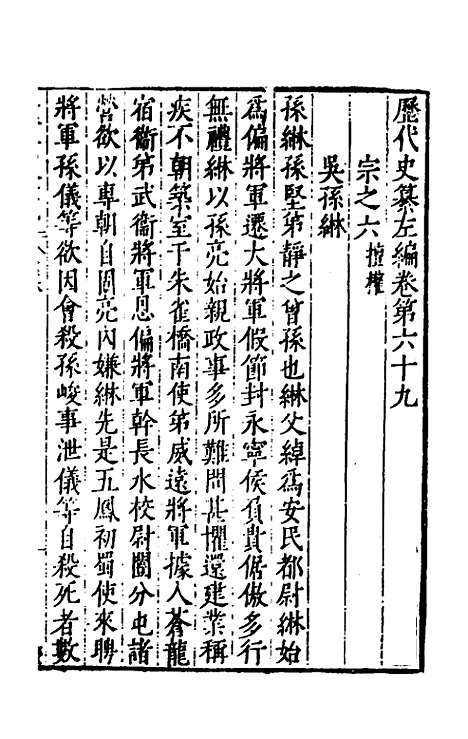 歷代史纂左編卷第六十九
宗之六擅權
吳孫綝
孫綝孫堅第靜之曾孫也綝父綽爲安民都尉綝始
爲偏將軍遷大將軍假節封永寧侯負貴倨傲多行
無禮綝以孫亮始親政事多所難問甚懼還建業稱
疾不朝築室于朱雀橋南使第威遠將軍據入蒼龍
宿衞第武衞將軍恩偏將軍幹長水校尉闓分屯諸
營欲以專朝自固亮內嫌綝先是五鳳初蜀使來聘
將軍孫儀等欲因會殺孫峻事泄儀等自殺死者數